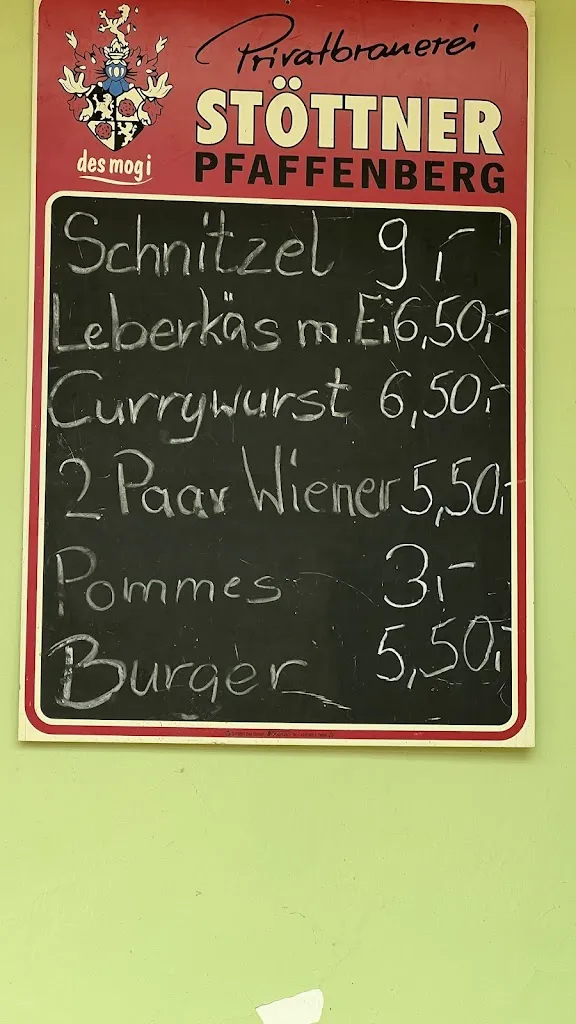 Privatbrauerei
STÖTTNER
PFAFFENBERG
des mog i
Schnitzel 9,-
Leberkäs m. Ei 6,50,-
Currywurst 6,50,-
2 Paar Wiener 5,50,-
Pommes 3,-
Burger 5,50,-